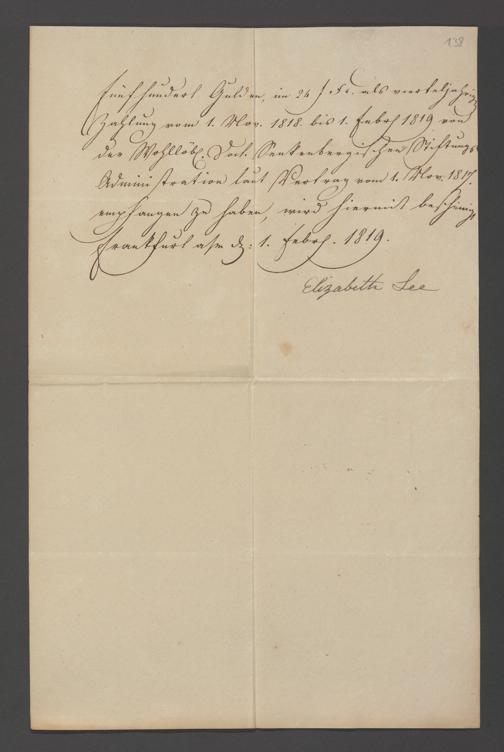 138
Fünfhundert Gulden, im 24 f. Fs. als vierteljährige
Zahlung vom 1. Nov. 1818. bis 1. Febrʳ 1819 von
der Wohllöbl. Doct. Senkenbergischen Stiftungs
Administration laut Vertrag vom 1. Nov. 1817.
empfangen zu haben, wird hiermit bescheinigt
Frankfurt a/m d: 1. Febr. 1819.
Elizabeth Lee